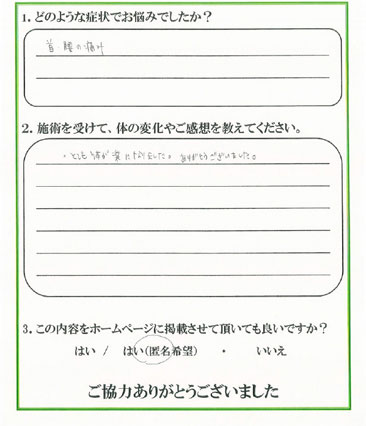 1. どのような症状でお悩みでしたか?
首・腰の痛み
2. 施術を受けて、体の変化やご感想を教えてください。
・とても楽になりました。ありがとうございました。
3. この内容をホームページに掲載させて頂いても良いですか?
はい / はい(匿名希望) ・ いいえ
ご協力ありがとうございました